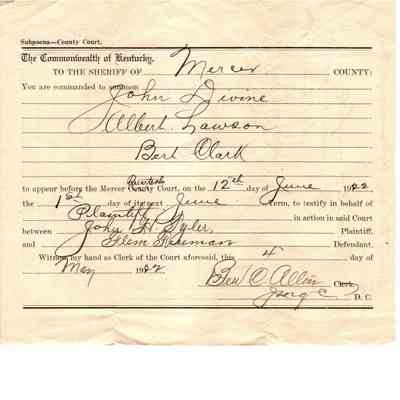 Subpoena—County Court.
The Commonwealth of Kentucky.
TO THE SHERIFF OF Mercer COUNTY:
You are commanded to summon
John Divine
Albert Lawson
Bert Clark
to appear before the Mercer Quarterly County Court, on the 12th day of June 1922
the 1st day of its next June Term, to testify in behalf of
Plaintiff in action in said Court
between John H. Tyler, Plaintiff,
and Flem Defendant.
Witness my hand as Clerk of the Court aforesaid, this 4 day of
May 1922
Ben C. Allin Clerk,
D. C.